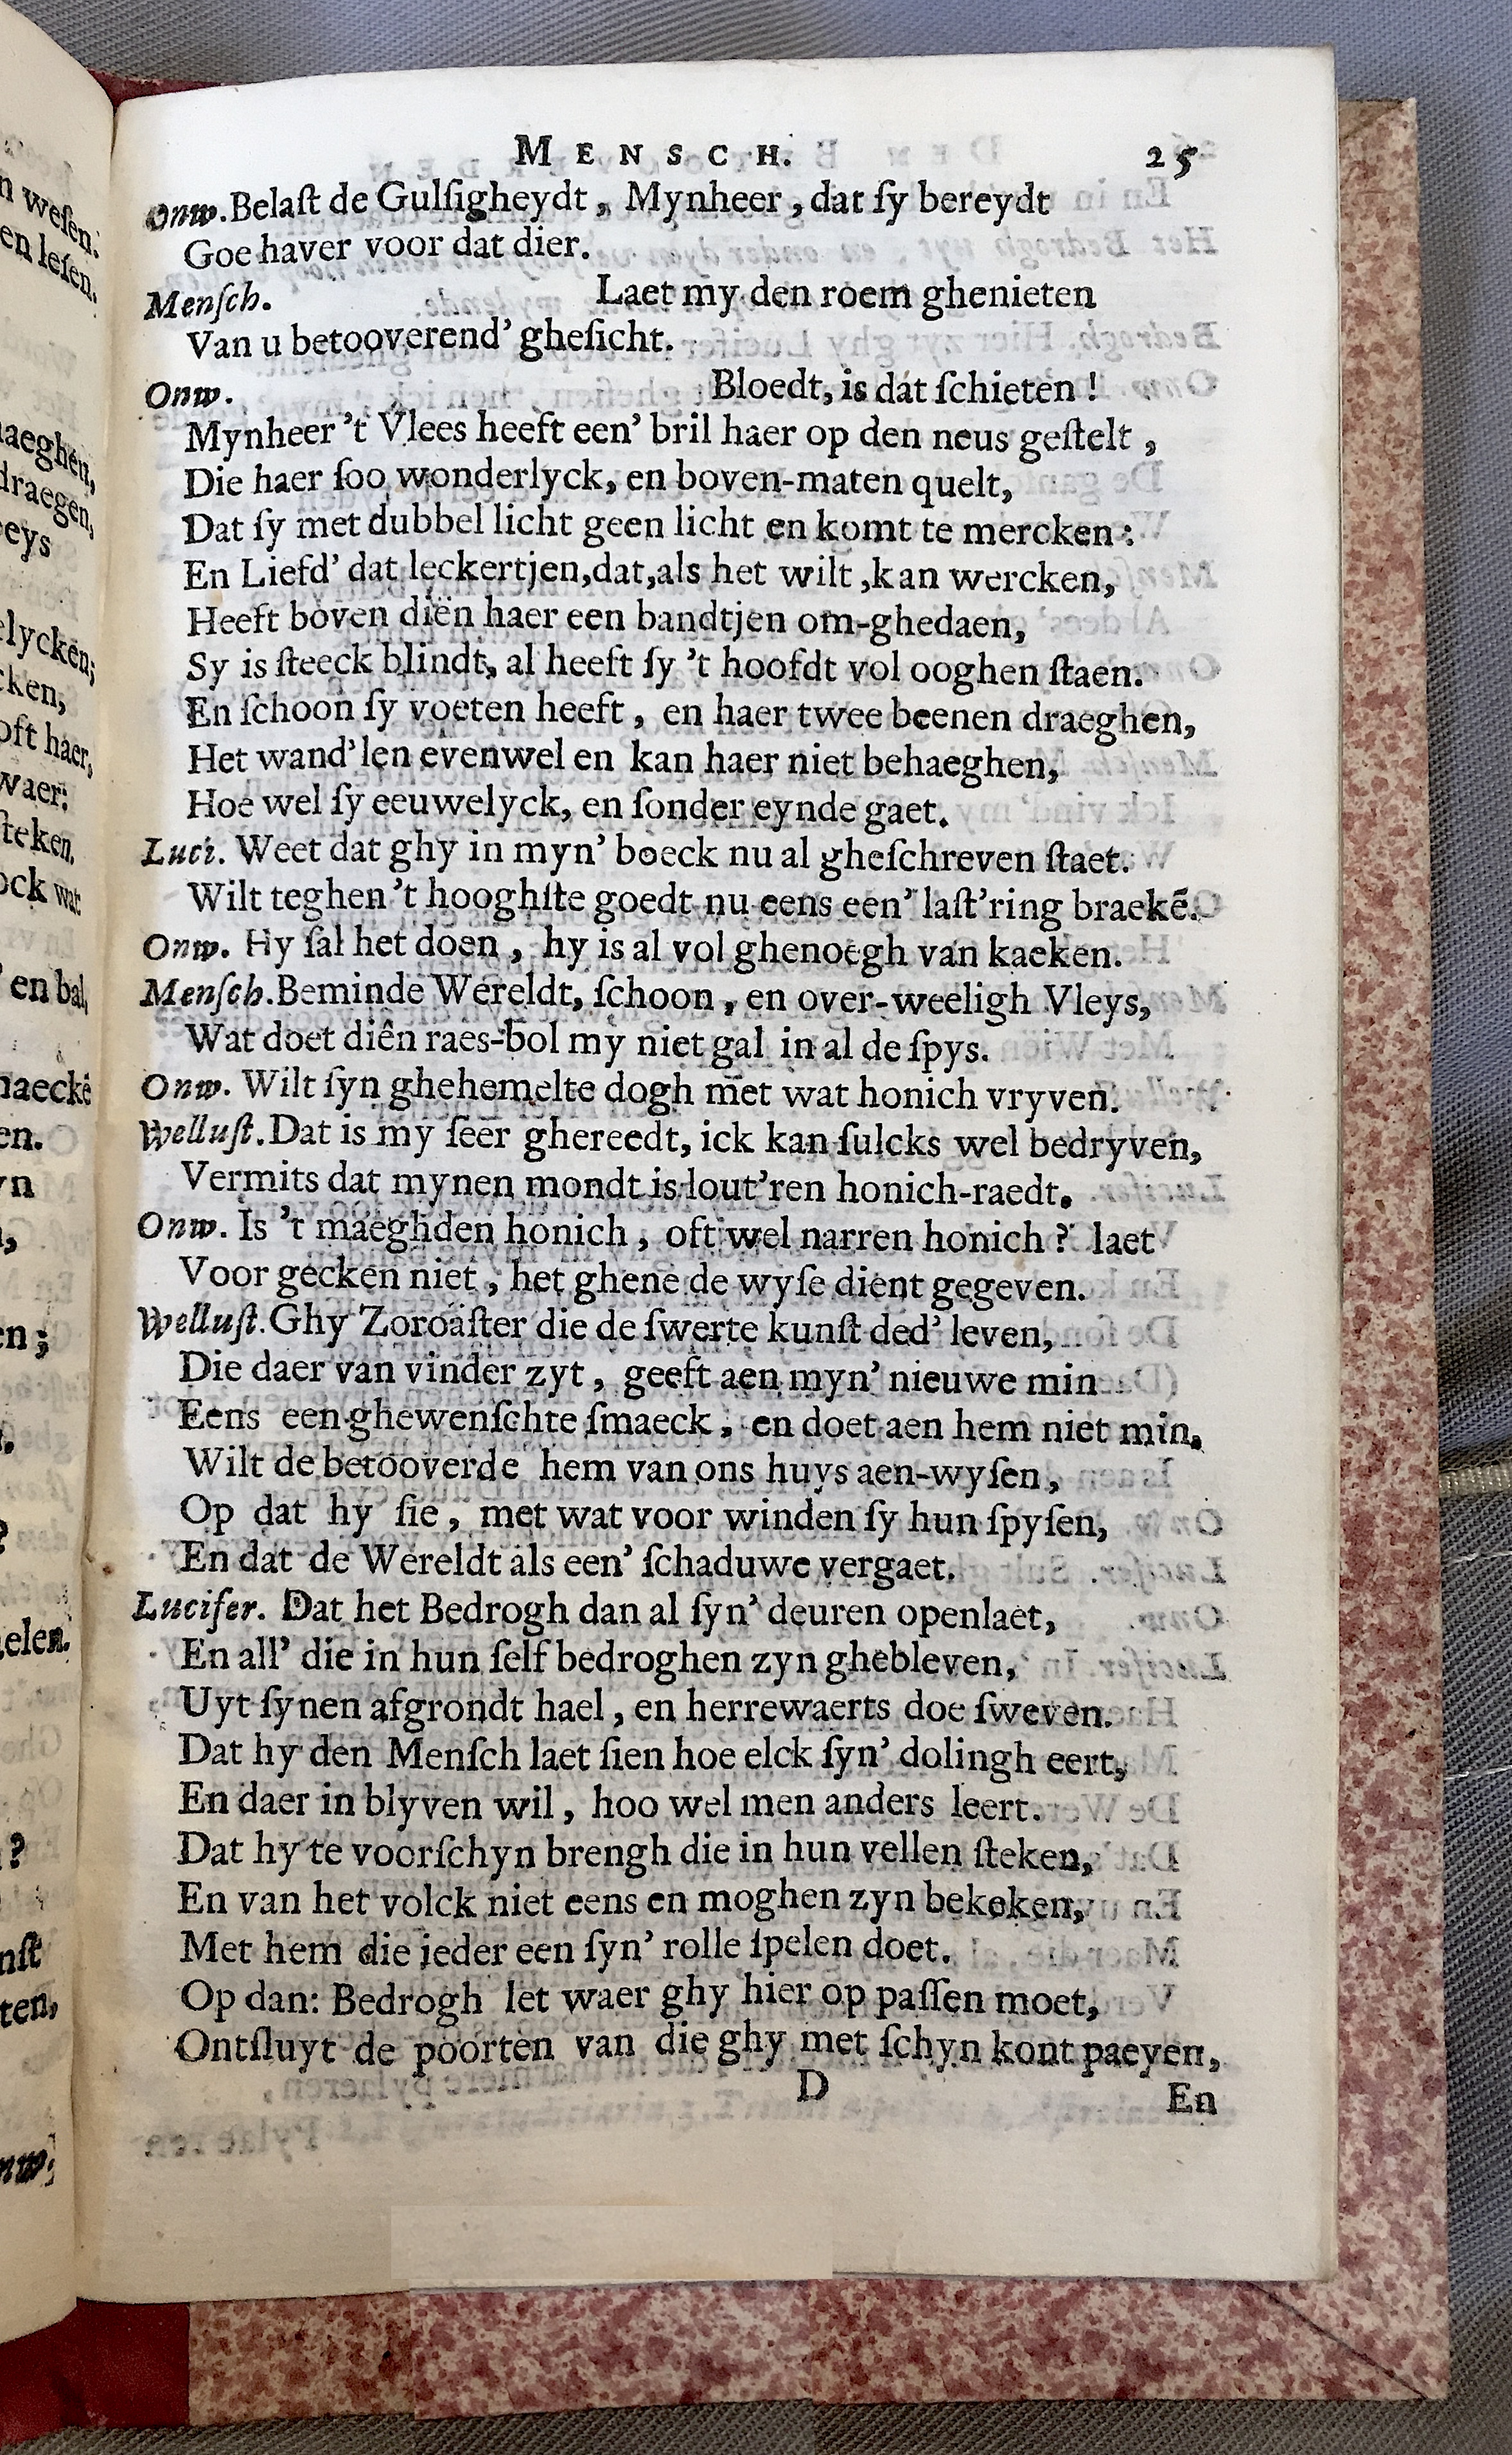 MENSCH. 25
Onw. Belaſt de Gulſigheydt, Mynheer, dat ſy bereydt
Goe haver voor dat dier.
Menſch. Laet my den roem ghenieten
Van u betooverend' gheſicht.
Onw. Bloedt, is dat ſchieten!
Mynheer 't Vlees heeft een' bril haer op den neus geſtelt,
Die haer ſoo wonderlyck, en boven-maten quelt,
Dat ſy met dubbel licht geen licht en komt te mercken:
En Liefd' dat leckertjen, dat, als het wilt, kan wercken,
Heeft boven diën haer een bandtjen om-ghedaen,
Sy is ſteeck blindt, al heeft ſy 't hoofdt vol ooghen ſtaen.
En ſchoon ſy voeten heeft, en haer twee beenen draeghen,
Het wand'len evenwel en kan haer niet behaeghen,
Hoe wel ſy eeuwelyck, en ſonder eynde gaet.
Luci. Weet dat ghy in myn' boeck nu al gheſchreven ſtaet.
Wilt teghen 't hooghſte goedt nu eens een' laſt'ring braekē.
Onw. Hy ſal het doen, hy is al vol ghenoegh van kaeken.
Menſch. Beminde Wereldt, ſchoon, en over-weeligh Vleys,
Wat doet diên raes-bol my niet gal in al de ſpys.
Onw. Wilt ſyn ghehemelte dogh met wat honich vryven.
Welluſt. Dat is my ſeer ghereedt, ick kan ſulcks wel bedryven,
Vermits dat mynen mondt is lout'ren honich-raedt.
Onw. Is 't maeghden honich, oft wel narren honich? laet
Voor gecken niet, het ghene de wyſe dient gegeven.
Welluſt. Ghy Zoroaſter die de ſwerte kunſt ded' leven,
Die daer van vinder zyt, geeft aen myn' nieuwe min
Eens een ghewenſchte ſmaeck, en doet aen hem niet min.
Wilt de betooverde hem van ons huys aen-wyſen,
Op dat hy ſie, met wat voor winden ſy hun ſpyſen,
En dat de Wereldt als een' ſchaduwe vergaet.
Lucifer. Dat het Bedrogh dan al ſyn' deuren openlaet,
En all' die in hun ſelf bedroghen zyn ghebleven,
Uyt ſynen afgrondt hael, en herrewaerts doe ſweven.
Dat hy den Menſch laet ſien hoe elck ſyn' dolingh eert,
En daer in blyven wil, hoo wel men anders leert.
Dat hy te voorſchyn brengh die in hun vellen ſteken,
En van het volck niet eens en moghen zyn bekeken,
Met hem die ieder een ſyn' rolle ſpelen doet.
Op dan: Bedrogh let waer ghy hier op paſſen moet,
Ontſluyt de poorten van die ghy met ſchyn kont paeyen,
D En